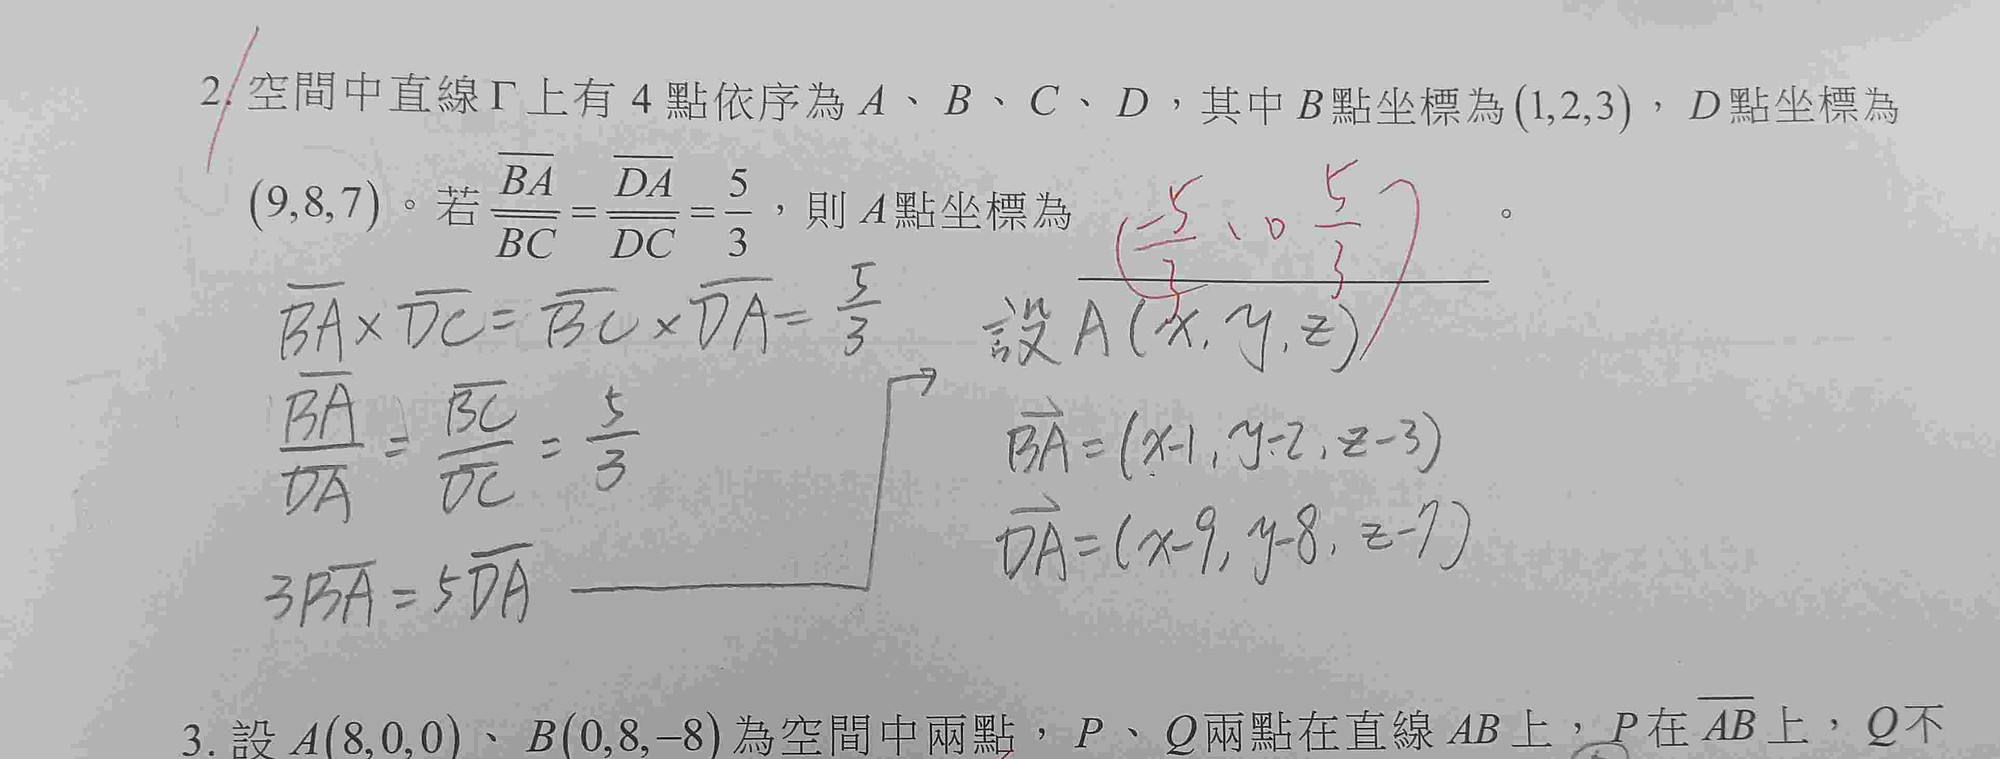 2. 空間中直線Γ上有 4 點依序為 A、B、C、D，其中 B點坐標為(1,2,3)，D點坐標為
(9,8,7)。若 BA/BC = DA/DC = 5/3，則 A點坐標為 (-5/3、0 5/3)。
BA×DC=BC×DA=5/3
設A(x, y, z)
BA/DA = BC/DC = 5/3
BA=(x-1, y-2, z-3)
DA=(x-9, y-8, z-7)
3BA=5DA
3. 設 A(8,0,0)、B(0,8,−8)為空間中兩點，P、Q兩點在直線 AB 上，P在 AB 上，Q不